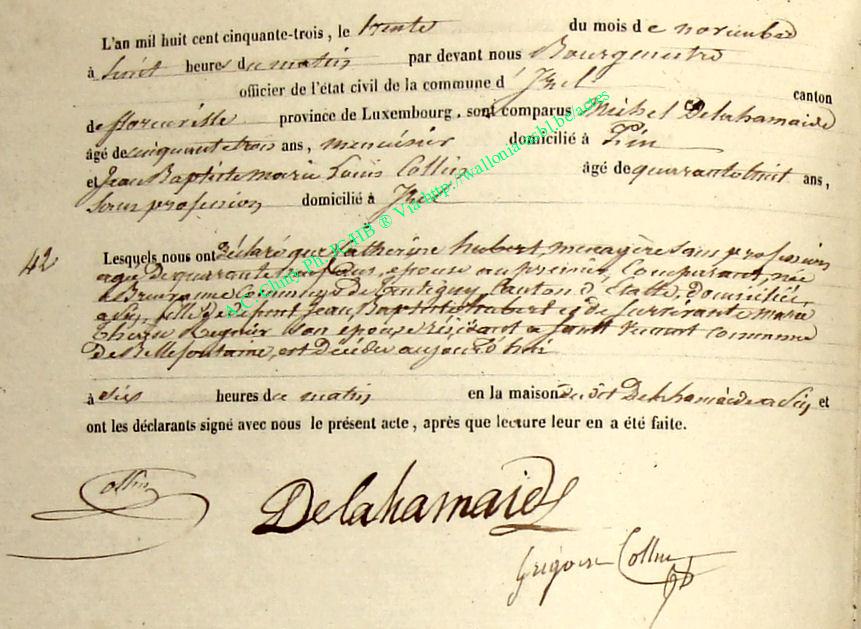 L'an mil huit cent cinquante-trois, le trente du mois de novembre
à huit heures du matin par devant nous Bourgmestre
officier de l'état civil de la commune d'Izel canton
de florenville province de Luxembourg, sont comparus Michel Delahamaide
âgé de cinquante trois ans, menuisier domicilié à Pin
et Jean Baptiste marie Louis Collin âgé de quarante huit ans,
sans profession domicilié à Izel
42 Lesquels nous ont déclaré que Catherine hubert, menagère sans profession
agée De quarante ans, epouse au premier Comparant, née
Commune de tintigny Canton d'Etalle, domiciliée
a Pin, fille de defunt Jean Baptiste hubert et de Survivante marie
Therese son epouse résidant a Saint vincent commune
de Bellefontaine, est Décédée aujourd'hui
à six heures du matin en la maison du dit Delahamaide a Pin et
ont les déclarants signé avec nous le présent acte, après que lecture leur en a été faite.
Collin
Delahamaide
Grégoire Collin
A.C. Chiny Ph. PC-HB ® Via http://wallonia.asbl.be/actes